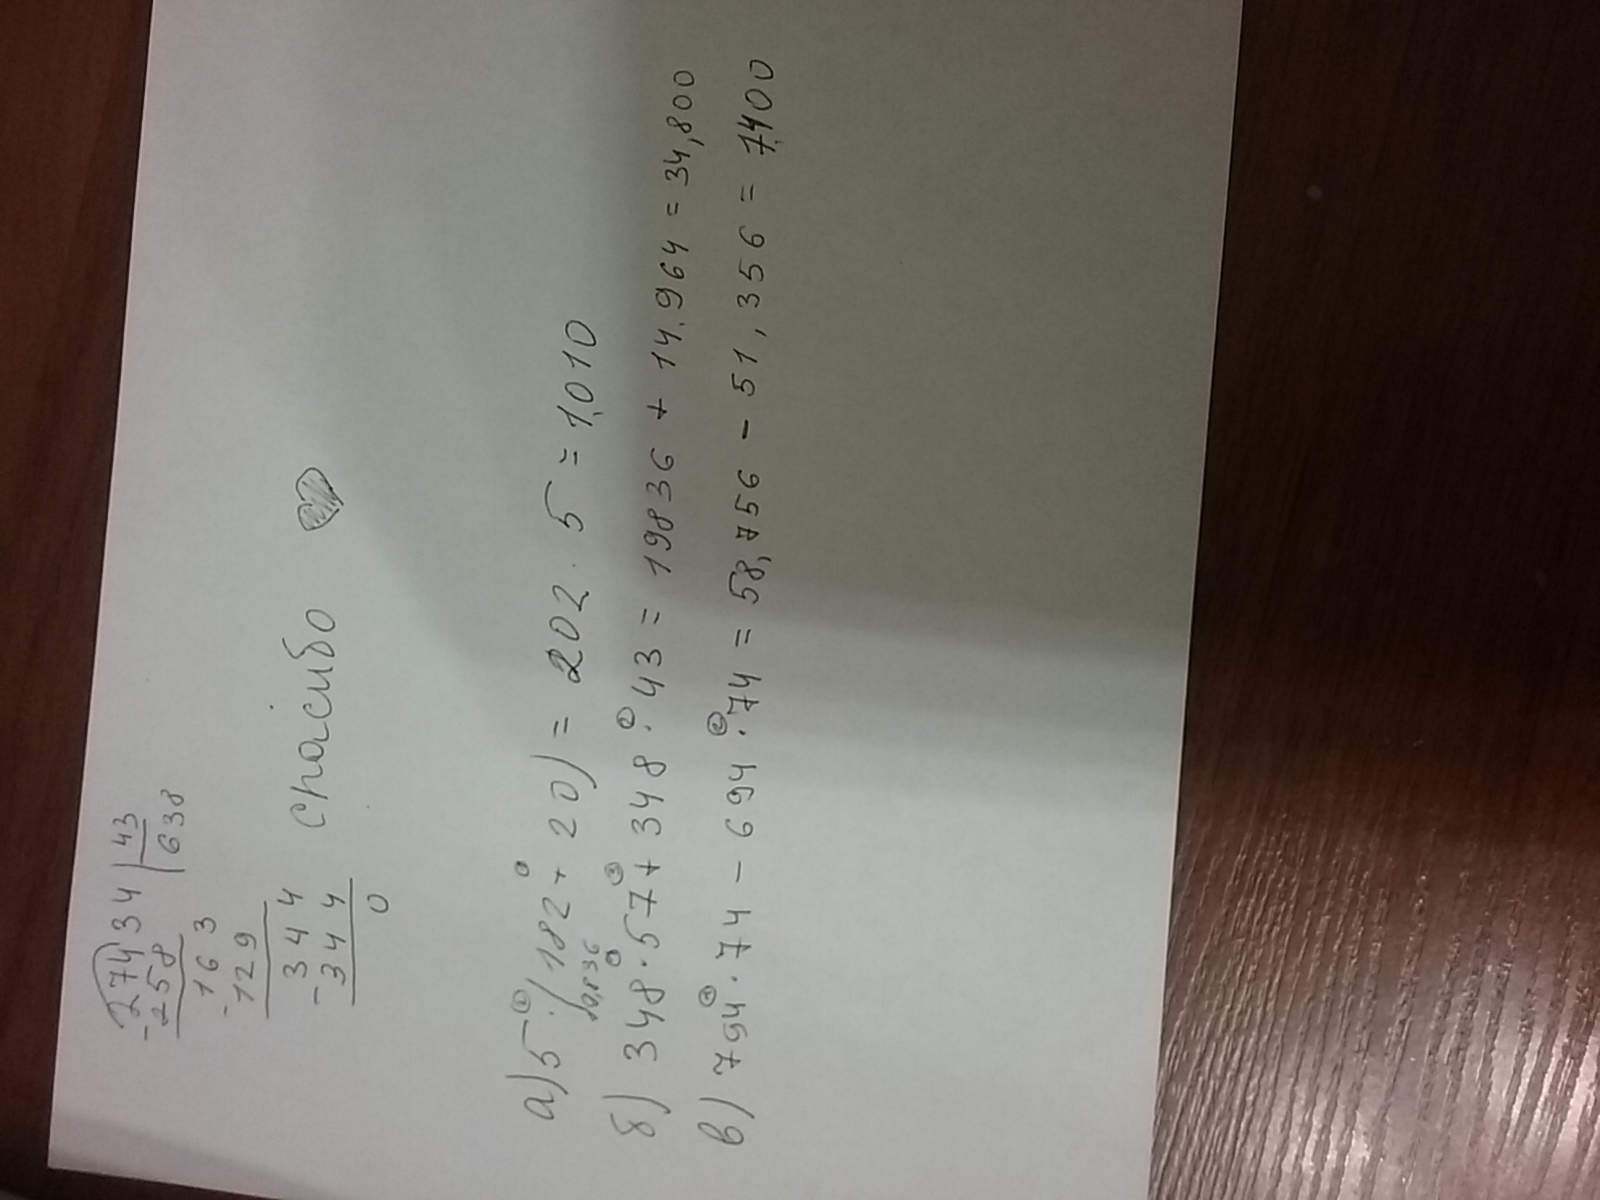 27434 | 43
-258 638
-163
-129
344
-344
0
спасибо
а) 5 · (182 + 20) = 202 · 5 = 1,010
19,836
б) 348 · 57 + 348 · 43 = 19836 + 14.964 = 34,800
в) 794 · 74 - 694 · 74 = 58,756 - 51,356 = 7,400